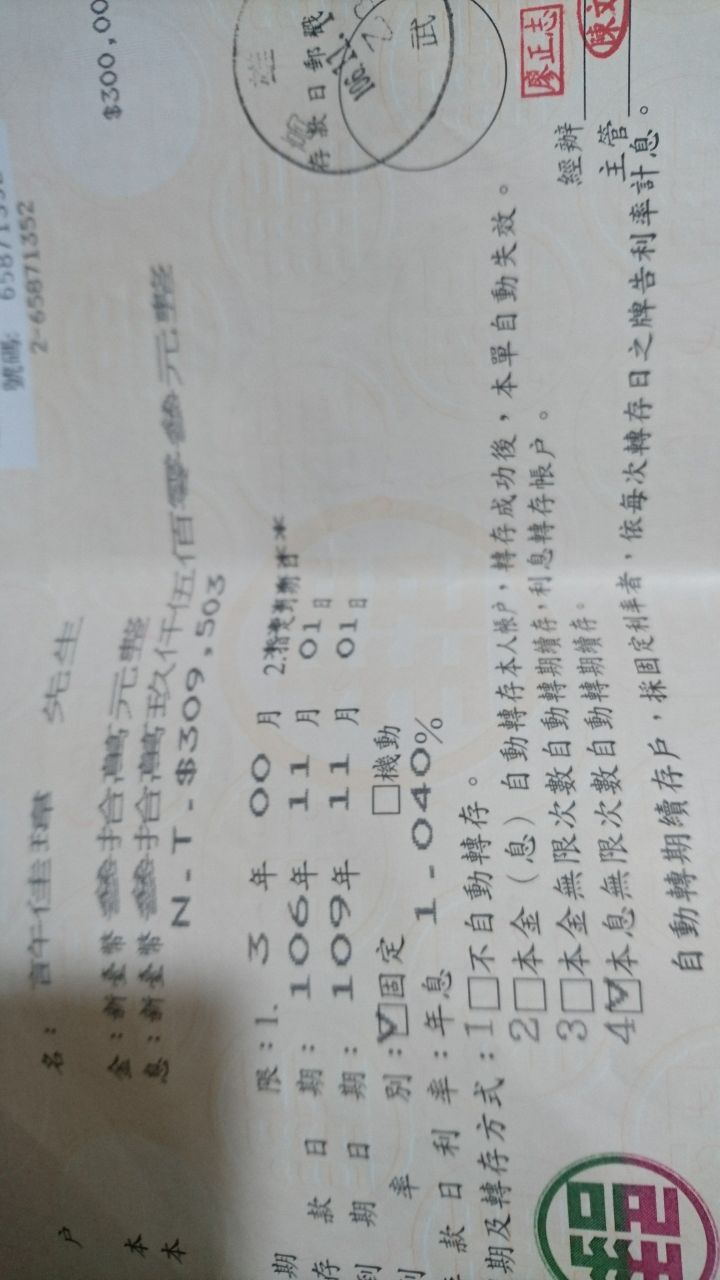 號碼: 65871352
2-65871352
戶名: 許佳瑋 先生
本金:新臺幣參拾萬元整 $300,00
本息:新臺幣參拾萬玖仟伍佰零參元整
N-T-$309,503
期限:1. 3 年 00 月 2.指定到期日
存款日期: 106年 11 月 01日
到期日期: 109年 11 月 01日
利率別: ☑固定 □機動
存款日利率:年息 1-040%
到期及轉存方式:1□不自動轉存。
2□本金(息)自動轉存本人帳戶,轉存成功後,本單自動失效。
3□本金無限次數自動轉期續存,利息轉存帳戶。
4☑本息無限次數自動轉期續存。
自動轉期續存戶,採固定利率者,依每次轉存日之牌告利率計息。
存款日郵戳
106.11.
武
經辦 廖正志
主管 陳文